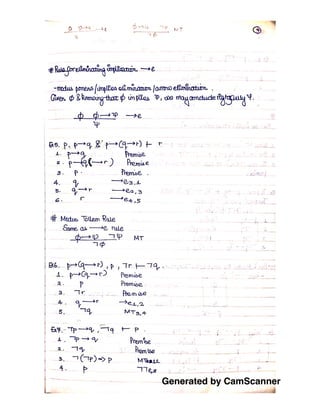 # Rule for eliminating implication →e
- modus ponens / implies elimination / arrow elimination.
Given φ & knowing that φ implies ψ, we may conclude rightfully ψ.
φ φ→ψ →e
ψ
Eg5. p, p→q & p→(q→r) ⊢ r
1. p→q Premise
2. p→(q→r) Premise
3. p. Premise.
4. q →e3,1
5. q→r →e2,3
6. r →e4,5
# Modus Tollens Rule
Same as →e rule
φ→ψ ¬ψ MT
¬φ
Eg6. p→(q→r), p, ¬r ⊢ ¬q.
1. p→(q→r) Premise
2. p Premise
3. ¬r Premise
4. q→r →e1,2
5. ¬q MT3,4
Eg7. ¬p→q, ¬q ⊢ p.
1. ¬p→q Premise
2. ¬q Premise
3. ¬(¬p)→p
4. p
Generated by CamScanner